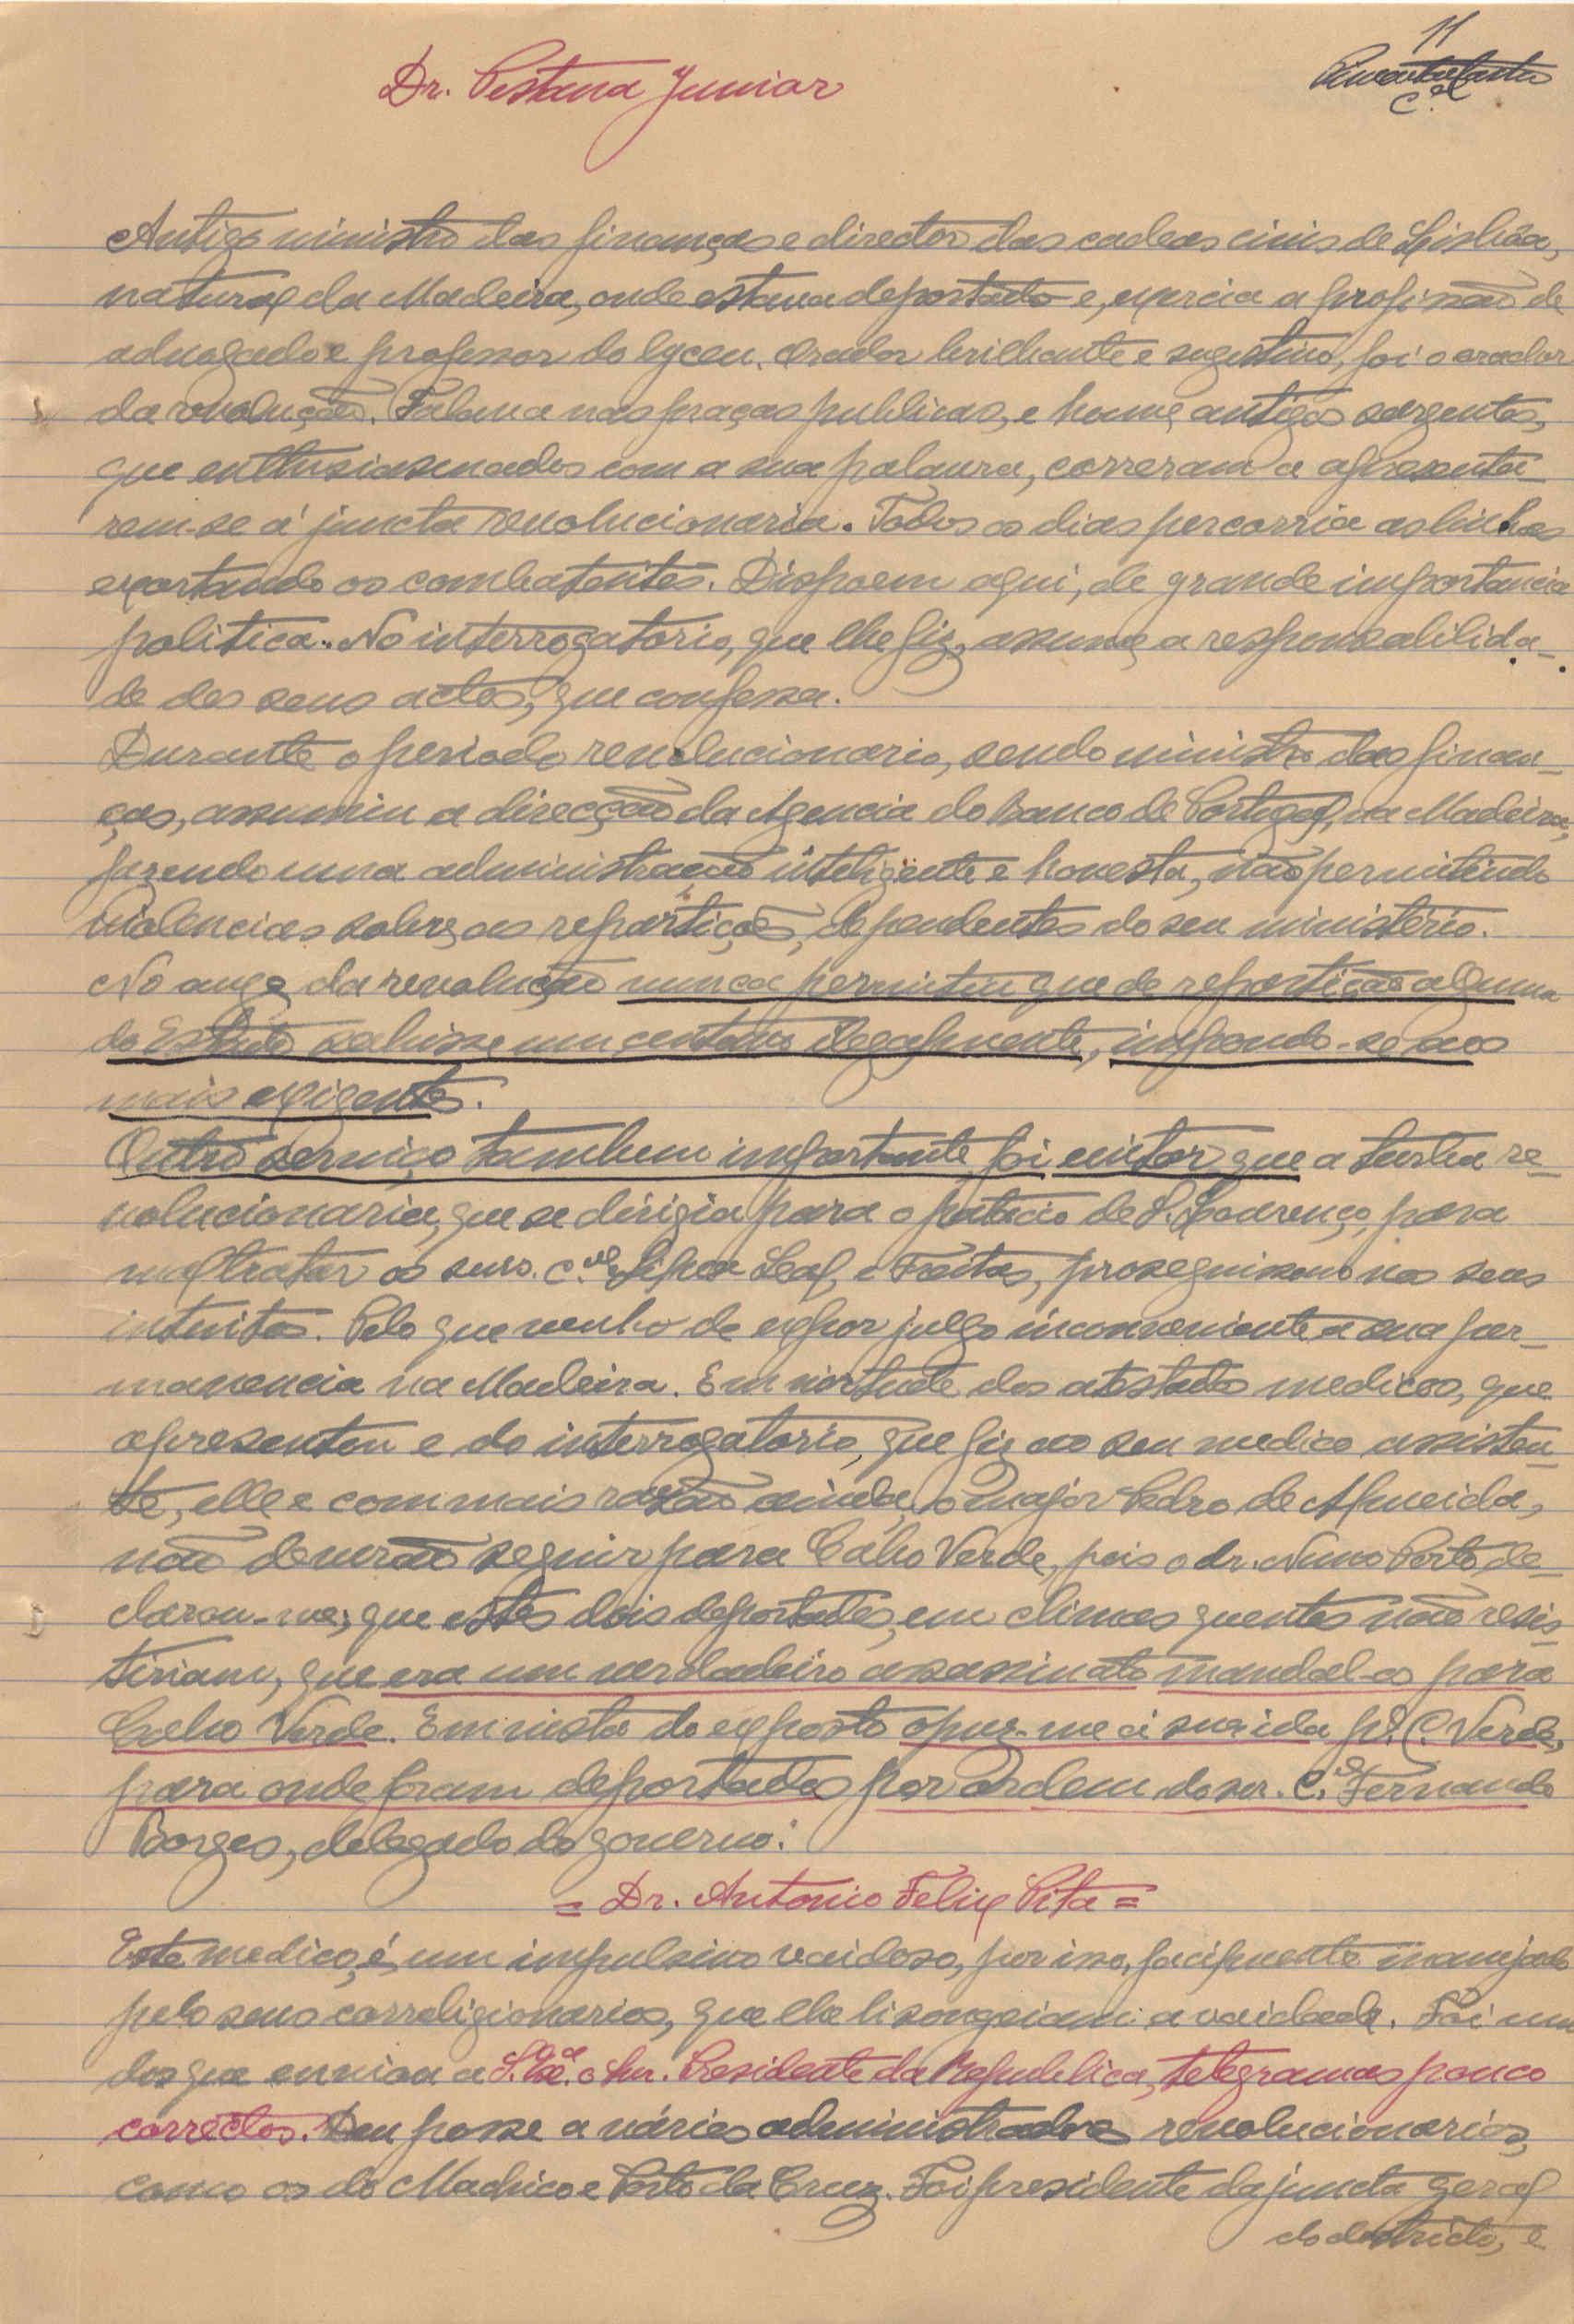 11
Dr. Pestana Junior
C.el
Antigo ministro das finanças e director das cadeas civis de Lisbôa,
natural da Madeira, onde estava deportado e, exercia a profissão de
advogado e professor do lyceu. Orador brilhante e sugestivo, foi o orador
da revolução. Falava nas praças publicas, e houve antigos sargentos,
que enthusiasmados com a sua palavra, correram a apresenta-
rem-se á juncta revolucionaria. Todos os dias percorria as linhas
exortando os combatentes. Dispoem aqui, de grande importancia
politica. No interrogatorio, que lhe fiz, assume a responsabilida-
de dos seus actos, que confessa.
Durante o periodo revolucionario, sendo ministro das finan-
ças, assumiu a direcção da Agencia do Banco de Portugal, na Madeira,
fazendo uma administração inteligente e honesta, não permitindo
violencias sobre as repartições, dependentes do seu ministério.
No auge da revolução nunca permitiu que de repartição alguma
do Estado sahisse um centavo ilegalmente, impondo-se aos
mais exigentes.
Outro serviço tambem importante foi evitar que a turba re-
volucionaria, que se dirigia para o palacio de S. Lourenço, para
maltratar os snrs. c.eis Silva Leal e Freitas, proseguissem nos seus
intuitos. Pelo que venho de expor julgo inconveniente a sua per-
manencia na Madeira. Em virtude dos atestados medicos, que
apresentou e do interrogatorio, que fiz ao seu medico assisten-
te, elle e com mais razão ainda, o major Pedro de Almeida,
não deverão seguir para Cabo Verde, pois o dr. Nuno Porto de-
clarou-me, que estes dois deportados, em climas quentes não resis-
tiriam, que era um verdadeiro assassinato mandal-os para
Cabo Verde. Em vista do exposto opuz-me á sua ida p.ª C. Verde,
para onde foram deportados por ordem do snr. C.el Fernando
Borges, delegado do governo.
= Dr. Antonio Felix Pita =
Este medico, é um impulsivo vaidoso, por isso, facilmente manejado
pelo seus correligionarios, que lhe lisongeiam a vaidade. Foi um
dos que enviou a S. Ex.ª o Snr. Presidente da Republica, telegramas pouco
correctos. Deu posse a vários administradores revolucionarios,
como os do Machico e Porto da Cruz. Foi presidente da juncta geral
do districto, e